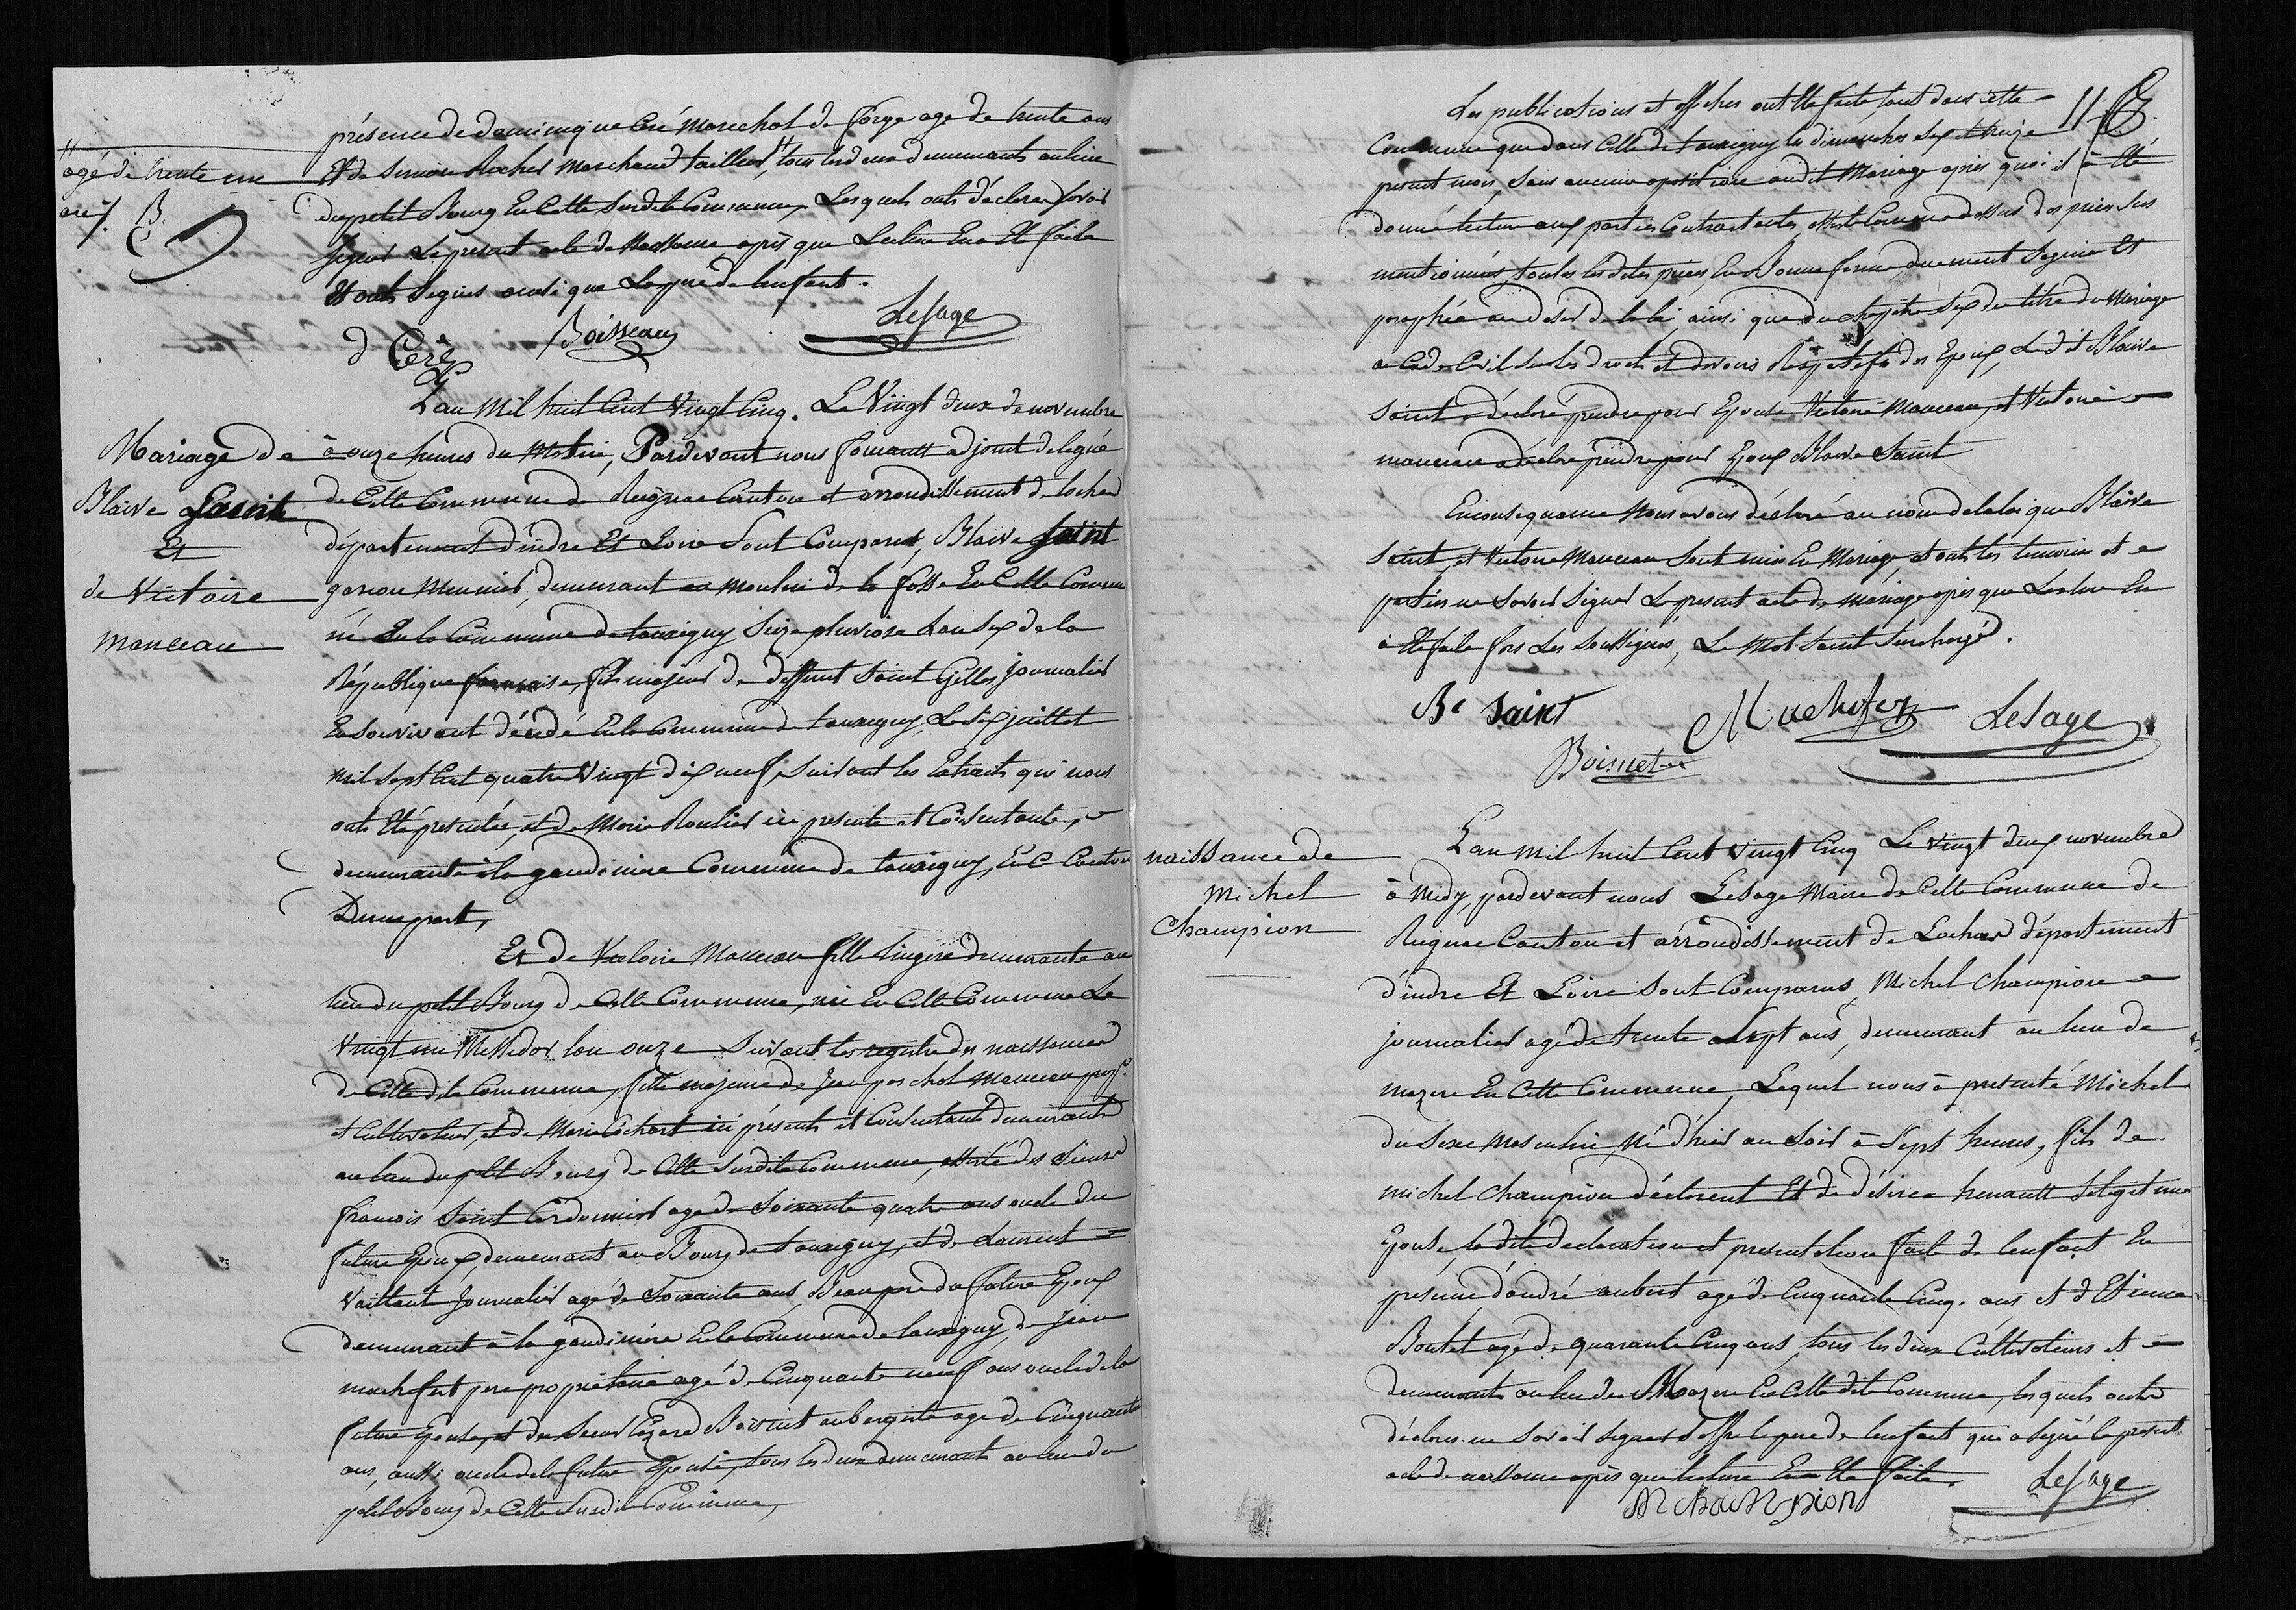 présence de dominique Ceré Marechal de forge agé de trente ans
Et de Simon Rocher Marchand tailleur, " tous les deux demeurants au lieu
du petit Bourg En Cette Susdite Commune, Lesquels onts déclarer Savoir
signer Le present acte de Naissance après que Lecture En a Eté faite
Et onts Signés ainsi que Le pere de lenfant.
"
agé de trente un
ans
d Ceré
Boisseau
LeSage
L'an Mil huit Cent Vingt Cinq. Le Vingt deux de novembre
Mariage de
Blaise Saint
Et
de Victoire
Manceau
à onze heures du Matin, Pardevant nous adjoint délégué
de Cette Commune de Reignac Canton et arrondissement de loches
département d'indre Et Loire Sont Comparus, Blaise Saint
garçon Meunier, demeurant au Moulin de la fosse En Cette Commune
né En la Commune de tauxigny Seize pluviose L'an Six de la
République française, fils majeur de deffunt Saint Gilles, journalier
En Souvivant décédé En la Commune de tauxigny, Le Six juillet
mil Sept Cent quatre Vingt dix neuf, Suivant les Extraits qui nous
onts Eté presentés, et de Marie Roulier ici presente et Consentante,
demeurante à la gaudinière Commune de tauxigny, En C Canton
D'une part,
Et de Victoire Manceau fille lingère demeurante au
lieu du petit Bourg de Cette Commune, née En Cette Commune Le
Vingt un Messidor l'an onze Suivant les registre des naissances
de Cette dite Commune, fille majeure de Jean paschal Manceau prop.re
et Cultivateur, et de Marie Cochart ici présents et Consentants demeurants
au lieu du petit Bourg de Cette Susdite Commune, assisté des Sieurs
françois Saint Cordonnier agé de Soixante quatre ans oncle du
future Epoux, demeurant au Bourg de tauxigny, et de Laurent
Vaillant Journalier agé de Soixante ans, Beau pere du future Epoux
demeurant à la gaudinière En la Commune de tauxigny, de Jean
machefert pere propriétaire agé de Cinquante neuf ans oncle de la
future Epouse, et du Sieur Lazare Boisnet aubergiste agé de Cinquante
ans, aussi oncle de la future Epouse, tous les deux demeurants au lieu du
petit Bourg de Cette Susdite Commune,
Les publications et affiches ont Eté faite, tant dans cette
Commune que dans Celle de tauxigny les dimanches Six et treize
present mois, Sans aucune opposition audit Mariage après quoi il a Eté
donné lecture aux parties Contractantes, assisté Comme dessus des pieces Sus
mentionnées, toutes lesdites pieces, En Bonne forme duement Signée Et
paraphée au désir de la loi, ainsi que du chapitre Six du titre du Mariage
au Code Civil Sur les droits et devoirs Respectifs des Epoux, Le dit Blaise
Saint a déclaré prendre pour Epouse Victoire Manceau, et Victoire
manceau a déclaré prendre pour Epoux Blaise Saint
En Consequence Nous avons déclaré au nom de la loi que Blaise
Saint, et Victoire Manceau Sont unis En Mariage, et onts les temoins et
parties ne Savoir Signer Le present acte de mariage après que Lecture En
à Eté faite fors Les Soussignés, Le Mot Saint Surchargé.
Be saint
Machefer
LeSage
Boisnet
naissance de
Michel
Champion
L'an mil huit Cent Vingt Cinq Le Vingt deux novembre
à Midy, pardevant nous LeSage Maire de Cette Commune de
Reignac Canton et arrondissement de Loches département
d'indre Et Loire Sont Comparus, Michel Champion
journalier agé de trente Sept ans, demeurant au lieu de
mazere En Cette Commune, Lequel nous à presenté Michel
du Sexe Masculin, Né d'hier au Soir à Sept heures, fils de
michel Champion déclarent Et de désirée henault Sa legitime
Epouse, la dite declaration et presentation faite de lenfant En
présence d'andré aubert agé de Cinquante Cinq. ans et d'Etienne
Boutet agé de quarante Cinq ans, tous les deux Cultivateurs et
demeurants au lieu de Mazere En Cette dite Commune, lesquels onts
déclarés ne Savoir Signer le pere de lenfant qui a Signé le present
acte de naissance après que lecture En a Eté faite.
LeSage
M Champion